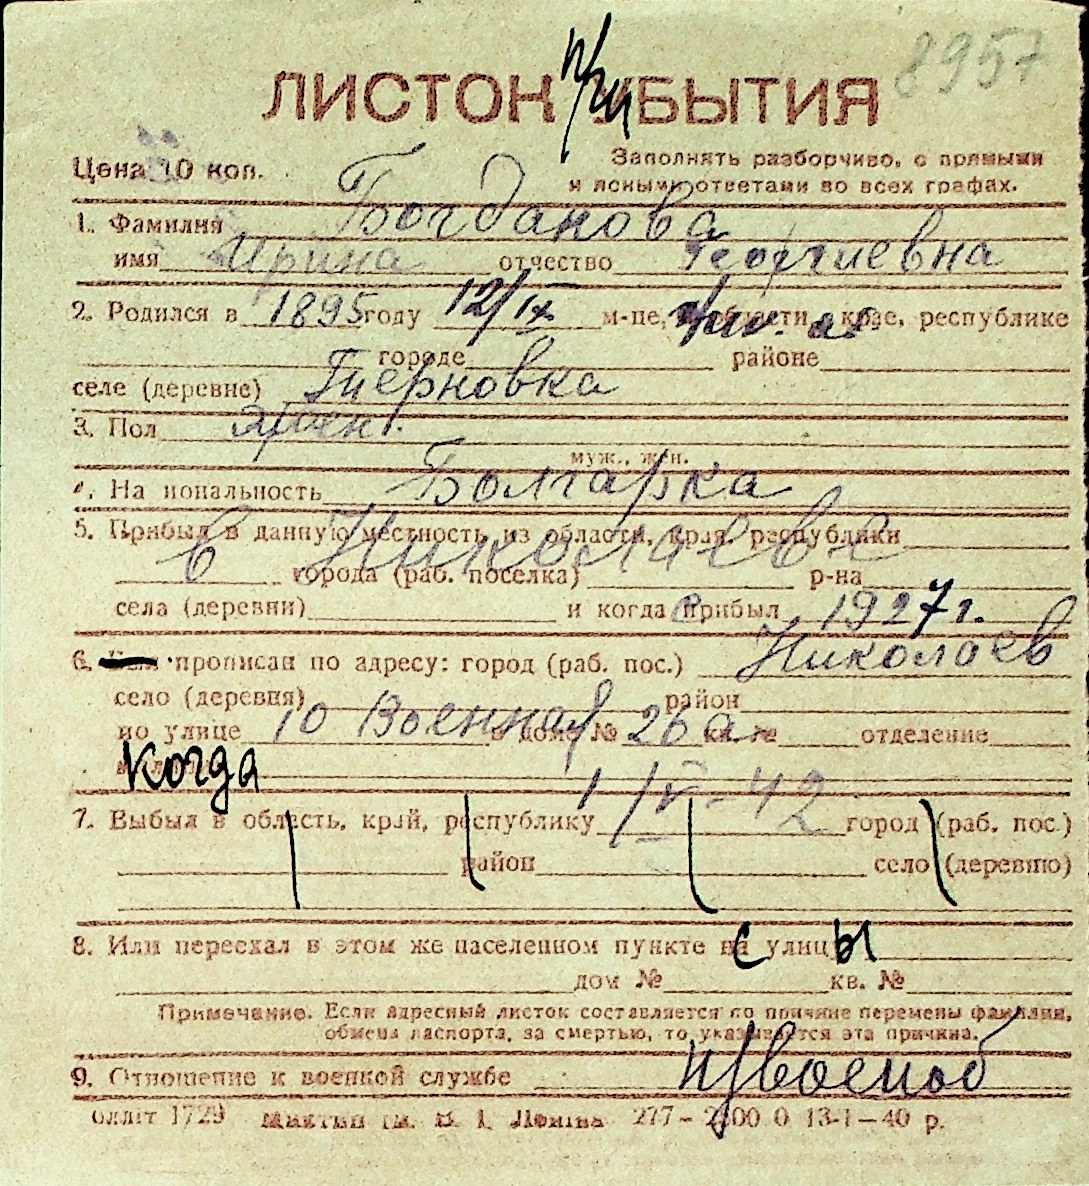 8957
ЛИСТОК при УБЫТИЯ
Цена 10 коп.
Заполнять разборчиво, с прямыми
и ясными ответами во всех графах.
1. Фамилия Богданова
имя Ирина отчество Георгиевна
2. Родился в 1895 году 12/IX м-це, области, крае, республике
городе районе
селе (деревне) Терновка
3. Пол жен.
муж., жен.
4. Национальность Болгарка
5. Прибыл в данную местность из области, края, республики
в Николаеве
города (раб. поселка) р-на
села (деревни) и когда прибыл с 1927 г.
6. Был прописан по адресу: город (раб. пос.) Николаев
село (деревня) район
по улице 10 Военная в доме № 26а кв. № отделение
когда
1/IV-42
7. Выбыл в область, край, республику город (раб. пос.)
район село (деревню)
8. Или переехал в этом же населенном пункте на с улицы
дом № кв. №
Примечание. Если адресный листок составляется по причине перемены фамилии,
обмена паспорта, за смертью, то указывается эта причина.
9. Отношение к военной службе н/военоб
оллiт 1729 iм. В. I. Ленiна 277- 0 13-1-40 р.